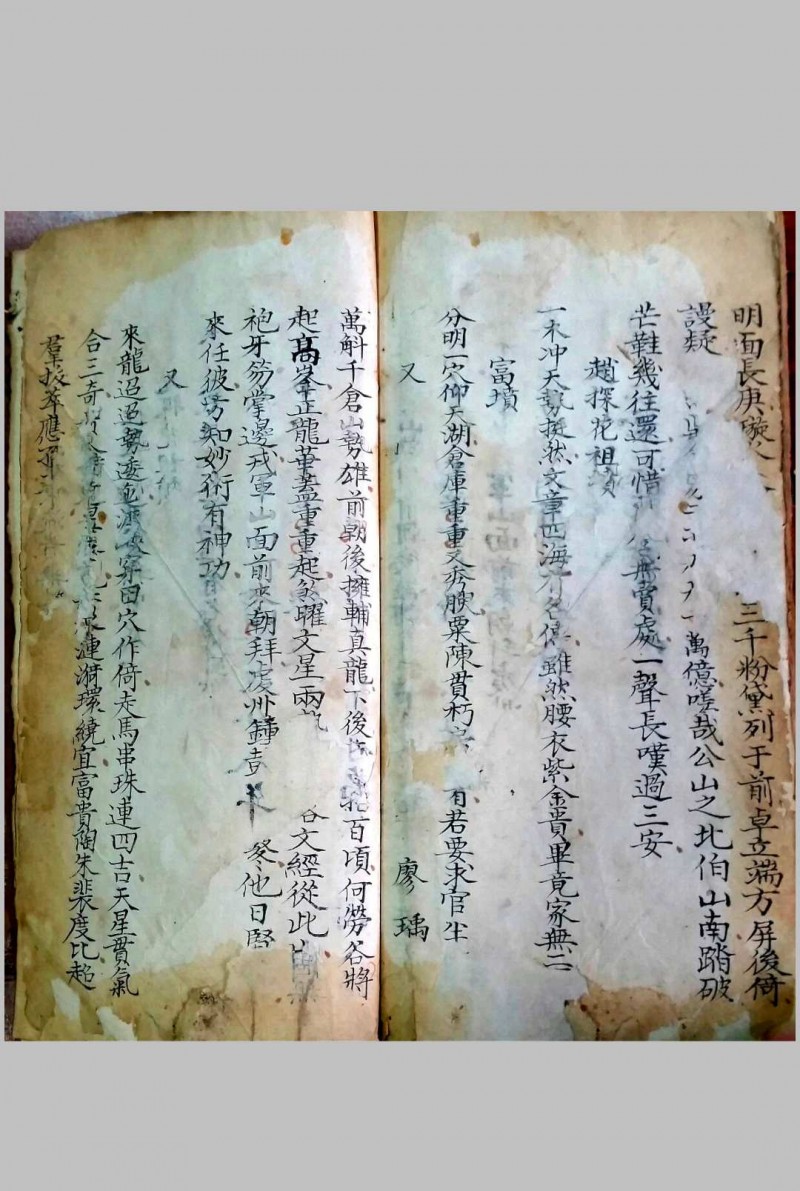 明面長庚 三千粉黛列于前卓立端方屏後倚
謾疑 萬億嘆哉公山之北伯山南踏破
芒鞋幾往還可惜 無賣處一聲長嘆過三安
趙探花祖墳
一木冲天勢挺然文章四海有名傳雖然腰衣紫金貴畢竟家無二
富墳
分明一穴仰天湖倉庫重重又秀腴粟陳貫朽 有若要求官坐
又 廖瑀
萬斛千倉山勢雄前朝後擁輔真龍下後 百頃何勞谷將
起高峯正龍華蓋重重起煞躍文星兩 文經從此
袍牙笏掌邊戎軍山面前來朝拜處州鍾 他日堅
來任彼方知妙術有神功
又
來龍迢迢勢逶迤渡 穿田穴作倚走馬串珠連四吉天星貫氣
合三奇 漣漪環繞宜富貴陶朱裴度比超
羣拔萃應